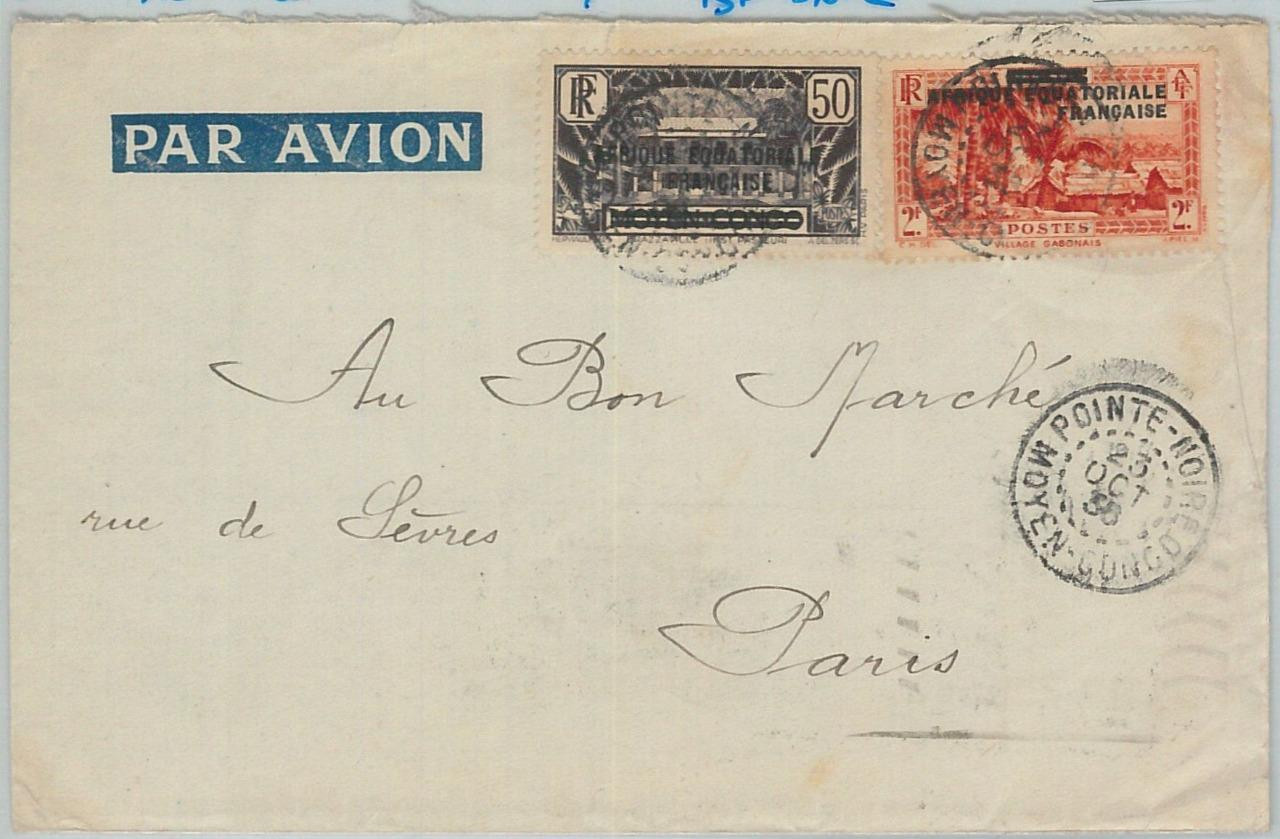 PAR AVION
RF 50
AFRIQUE EQUATORIALE
FRANÇAISE
MOYEN-CONGO
POSTES
RF AEF
AFRIQUE EQUATORIALE
FRANÇAISE
2F POSTES 2F
VILLAGE GABONAIS
Au Bon Marché
rue de Sèvres
Paris
POINTE-NOIRE
25
OCT
MOYEN-CONGO